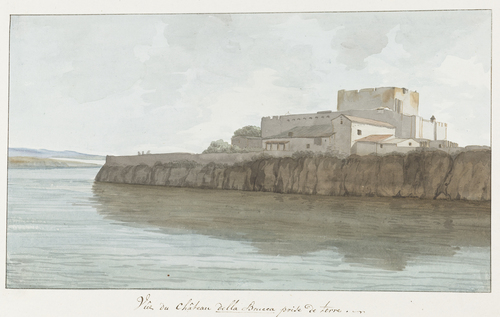 Vüe du Château della Brucca prise de terre. . . .